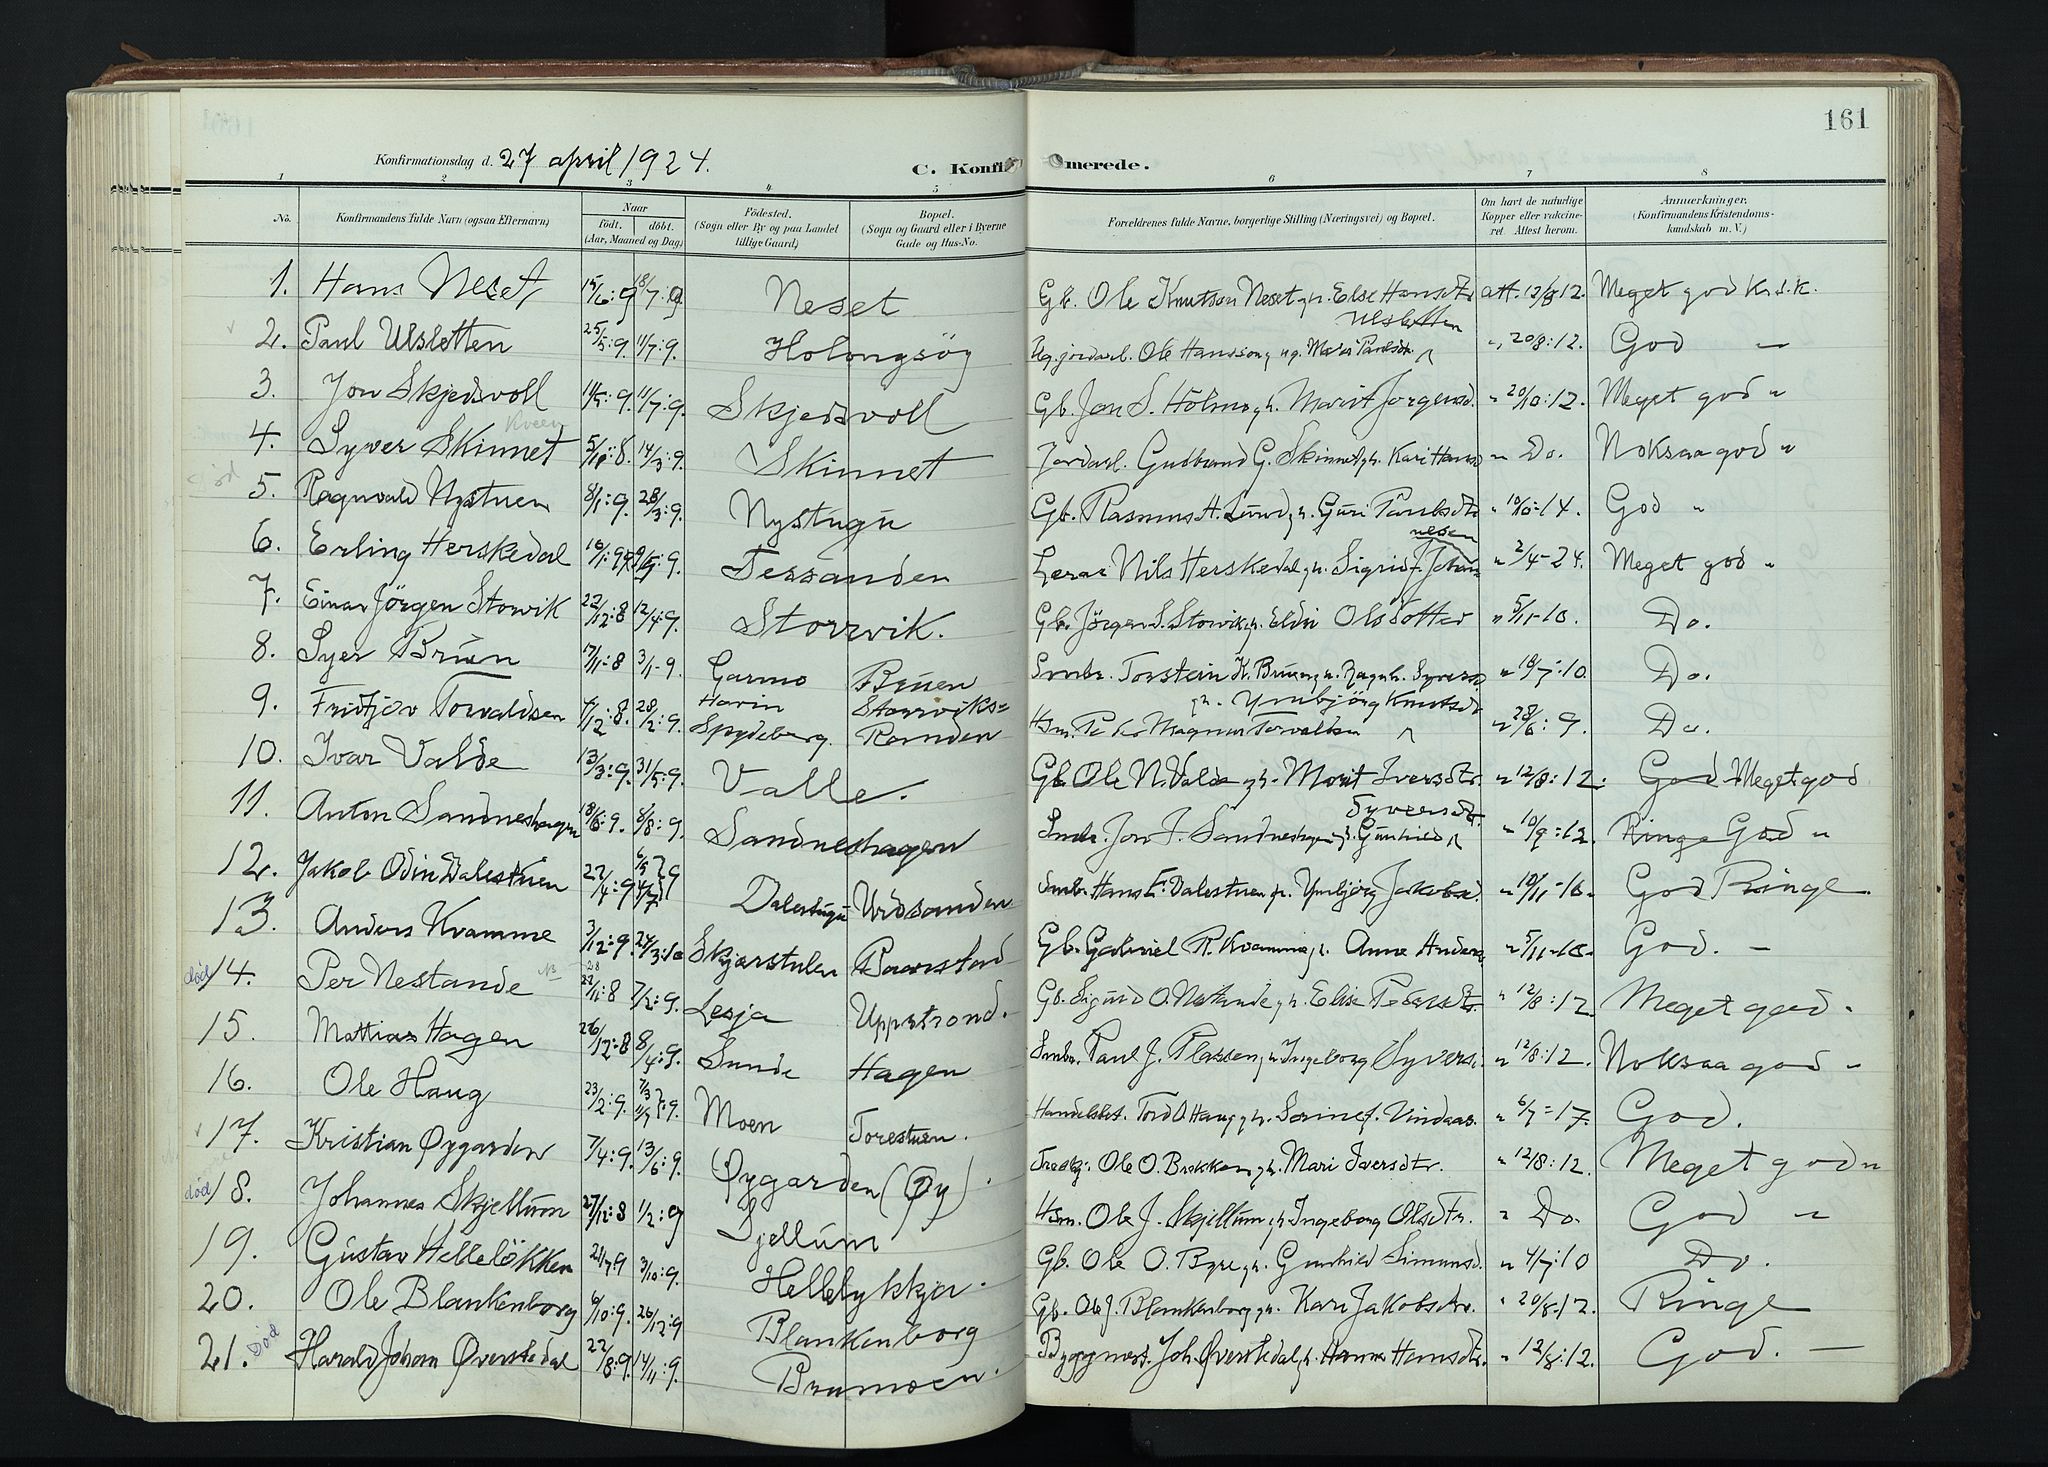 161
Konfirmationsdag d. 27 april 1924.
C. Konfirmerede.
1 2 3 4 5 6 7 8
No. Konfirmandens fulde Navn (ogsaa Efternavn) Naar født. døbt. (Aar, Maaned og Dag) Fødested. (Sogn eller By og paa Landet tillige Gaard) Bopæl. (Sogn og Gaard eller i Byerne Gade og Hus-No. Forældrenes fulde Navne, borgerlige Stilling (Næringsvei) og Bopæl. Om havt de naturlige Kopper eller vaksineret. Attest herom. Anmærkninger. (Konfirmandens Kristendomskundskab m. V.)
1. Hans Neset 15/6:9 18/7:9 Neset Gb. Ole Knutson Neset g.h. Else Hansdtr att. 12/8 12. Meget god Kr.d.k.
2. Paul Ulsletten 25/5:9. 11/7:9. Holongsøy Ug. jordarb. Ole Hansson g ug. Mari Paulsdtr. Ulsletten " 20/8:12. God —
3. Jon Skjedsvoll 11/7:9. Skjedsvoll Gb. Jon S. Holmo g.h. Marit Jorgensd. " 20/10:12. Meget god "
4. Syver Skinnet Kveen 14/3:9. Skinnet Jordarb. Gudbrand G. Skinnet g.h. Kari Hans " Do. Noksaa god "
5. Ragnvald Nystuen 8/1:9. 28/3:9. Nystugu Gb. Rasmus H. Lund g.h. Guri Paulsdtr " 10/10-14. God "
6. Erling Herskedal Tessanden Lærar Nils Herskedal g.h. Sigrid f. Johannesen " 2/4-24. Meget god "
7. Einar Jörgen Storvik 22/12:8 12/4:9. Storrvik. Gb. Jörgen S. Storvik g.h. Eldri Olsdotter " 5/11-10. Do.
8. Syver Bruen 17/11:8 3/1-9 Garmo Bruen Smbr. Torstein K. Bruen g.h. Ragnh. Syversd " 18/7:10 Do.
9. Fridtjov Torvaldsen 4/12:8. 28/2:9. Havin Spydeberg. Storviks= Randen Hsm. Peter Magnus Torvaldsen g.h. Ymbjörg Knutsdt " 28/6:9. Do.
10. Ivar Valde 13/3:9. 31/5:9. Valle. Gb. Ole N. Valde g.h. Marit Iversdtr. " 12/8:12. God Meget god
11. Anton Sandneshagen 18/6:9. 8/8:9. Sandneshagen Smbr. Jon J. Sandneshagen g.h. Gunhild Syversdtr. " 10/9:12. Ringe God "
12. Jakob Odin Dalestuen 22/4:9 Dalestugu Urdsanden Smbr. Hans E. Dalestuen g.h. Ymbjörg Jakobsd. " 10/11-16- God Ringe
13. Anders Kvamme 3/12:9. 24/3:10 Skjærstulen Gb. Gabriel P. Kvamme g.h. Anne Anders " 5/11-10- God. —
død 14. Per Nestande 7/2:9. Lesja Uppstrond. Gb. Sigurd O. Nestande g.h. Elise Pedersdtr. " 12/8:12 Meget god.
15. Mattias Hagen 26/12:8 8/4:9. Sunde Hagen Smbr. Paul J. Plassen g.h. Ingeborg Syversd. " 12/8:12. Noksaa god "
16. Ole Haug 23/2:9. Moen Torestuen. Handelsbet. Tord O. Haug g.h. Sorine f. Vindaas. " 6/7=17. God.
17. Kristian Øygarden 7/4:9. 13/6:9. Øygarden (Øy). Ole O. Brekken g.h. Mari Iversdtr. " 12/8:12. Meget god "
død 18. Johannes Skjellum 27/12:8 1/2:9 Sjellum Hsm. Ole J. Skjellum g.h. Ingeborg Olsdtr. " Do. God "
19. Gustav Hellelökken 21/7 9 3/10:9. Hellelykkja. Gb. Ole O. Byre g.h. Gunhild Simunsd. " 4/7:10 Do.
20. Ole Blankenborg 6/10:9. 26/12:9 Blankenborg Gb. Ole J. Blankenborg g.h. Kari Jakobsdtr. " 20/8-12. Ringe
21. Død Harald Johan Øverstedal 22/8:9. 14/11:9. Brumoen. Byggmest. Joh. Øverstedal g.h. Hanna Hansdtr. " 12/8:12. God. —